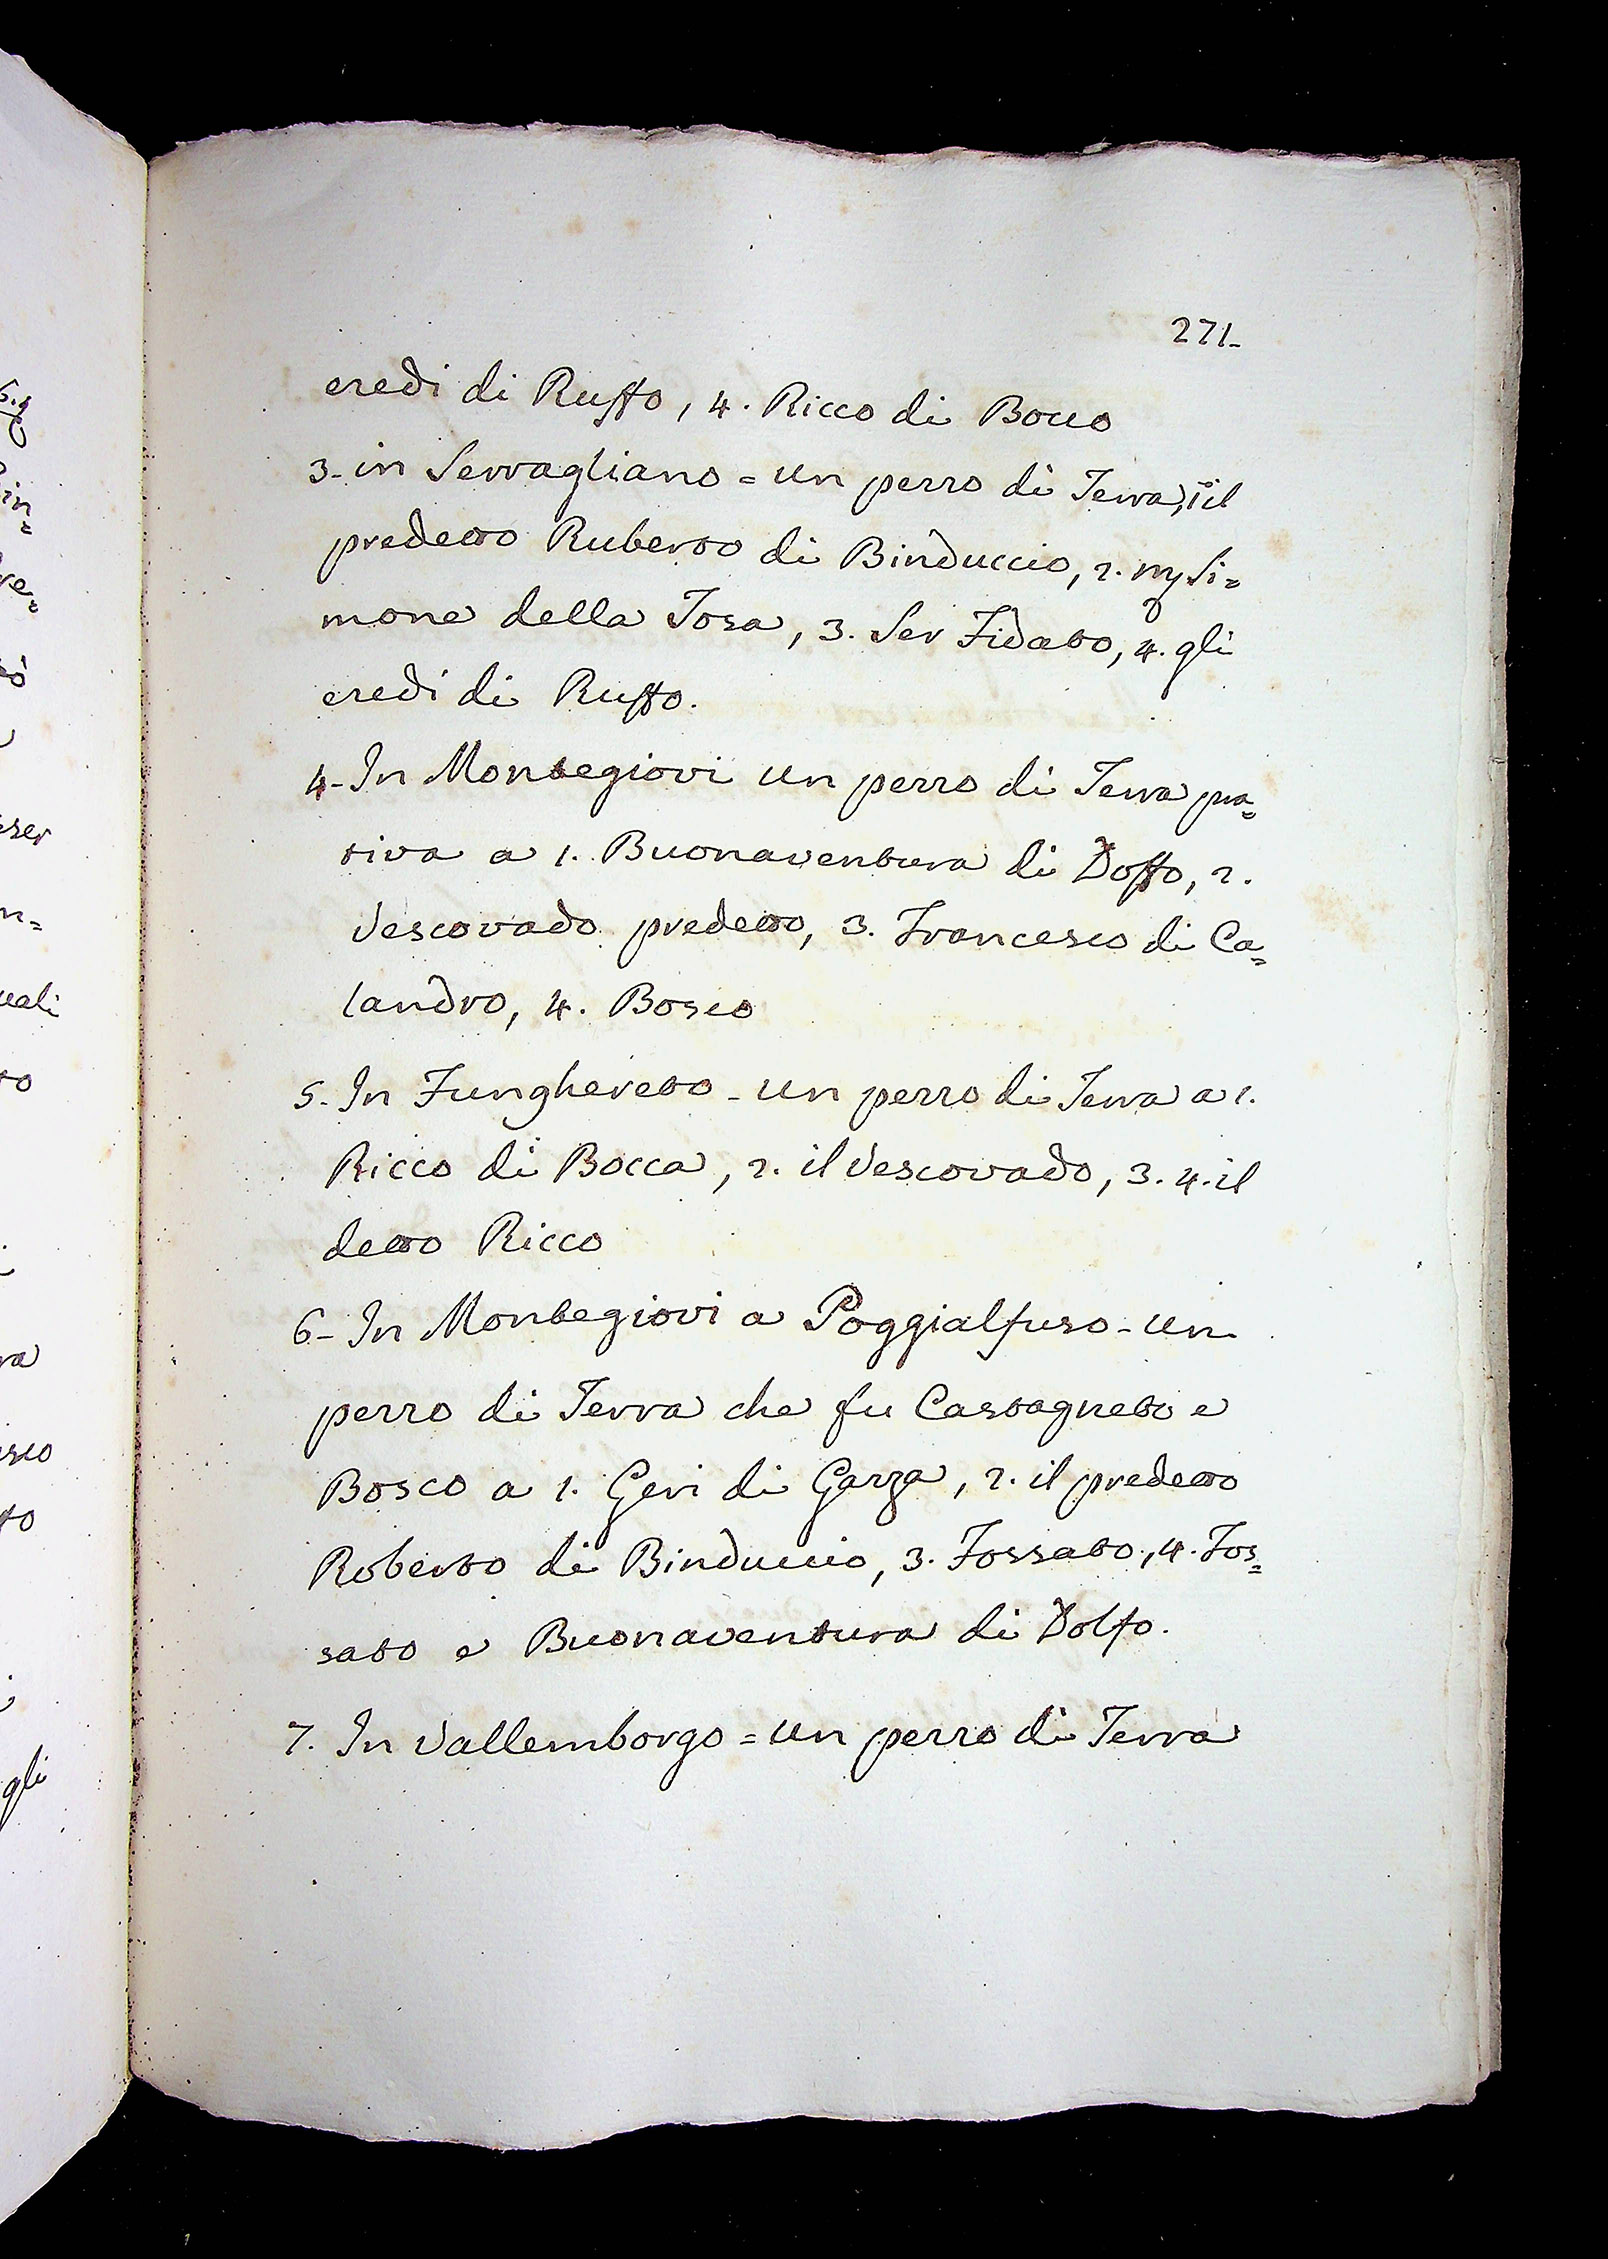 271_
eredi di Ruffo, 4. Ricco di Bocco
3- in Serragliano = un pezzo di Terra, 1 il
predetto Ruberto di Binduccio, 2. mſ Si=
mone della Tosa, 3. Ser Fidato, 4. gli
eredi di Ruffo.
4- In Montegiovi un pezzo di Terra pra=
tiva a 1. Buonaventura di Doffo, 2.
Vescovado predetto, 3. Francesco di Ca=
landro, 4. Bosco
5- In Funghereto - un pezzo di Terra a 1.
Ricco di Bocca, 2. il Vescovado, 3. 4. il
detto Ricco
6- In Montegiovi a Poggialfuso - un
pezzo di Terra che fu Castagneto e
Bosco a 1. Geri di Garza, 2. il predetto
Roberto di Binduccio, 3. Fossato, 4. Fos=
sato e Buonaventura di Dolfo.
7. In Vallemborgo = un pezzo di Terra